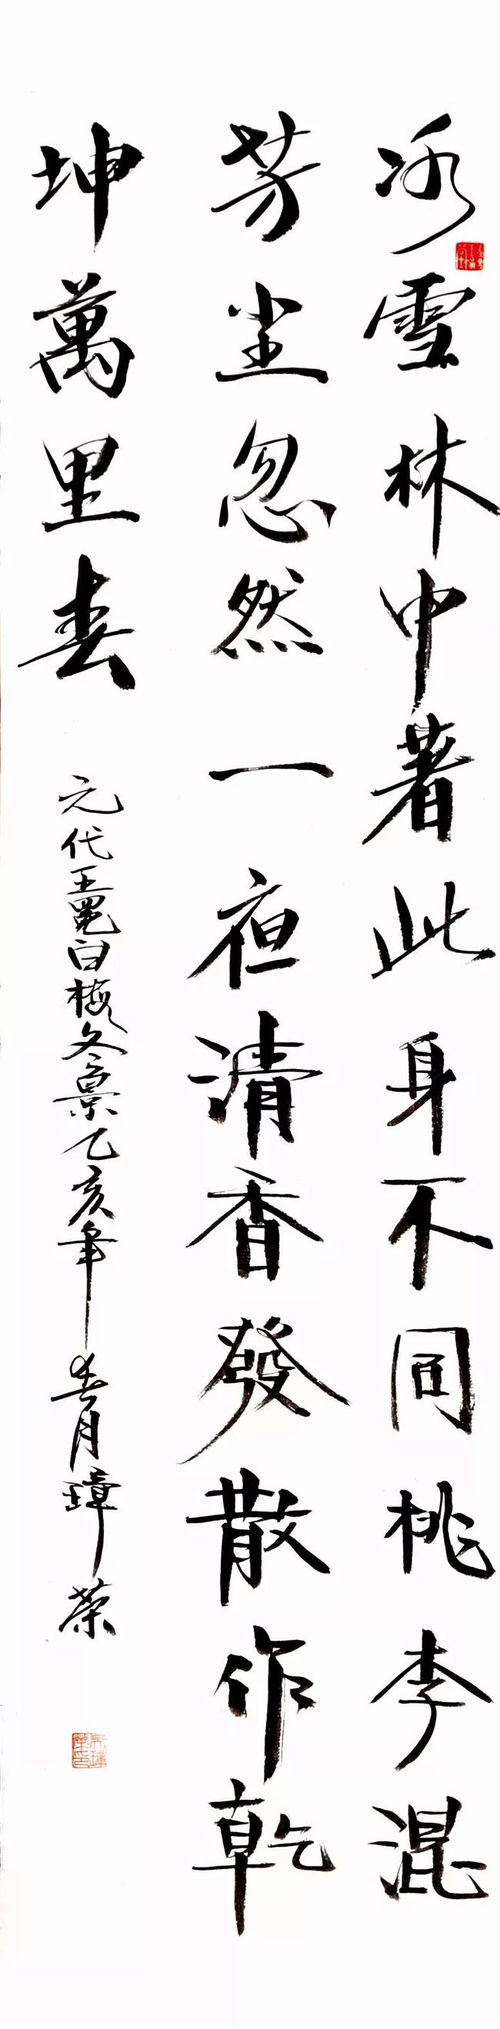 冰雪林中著此身不同桃李混
芳尘忽然一夜清香發散作乾
坤萬里春
元代王冕白梅冬景乙亥年春月璋荣